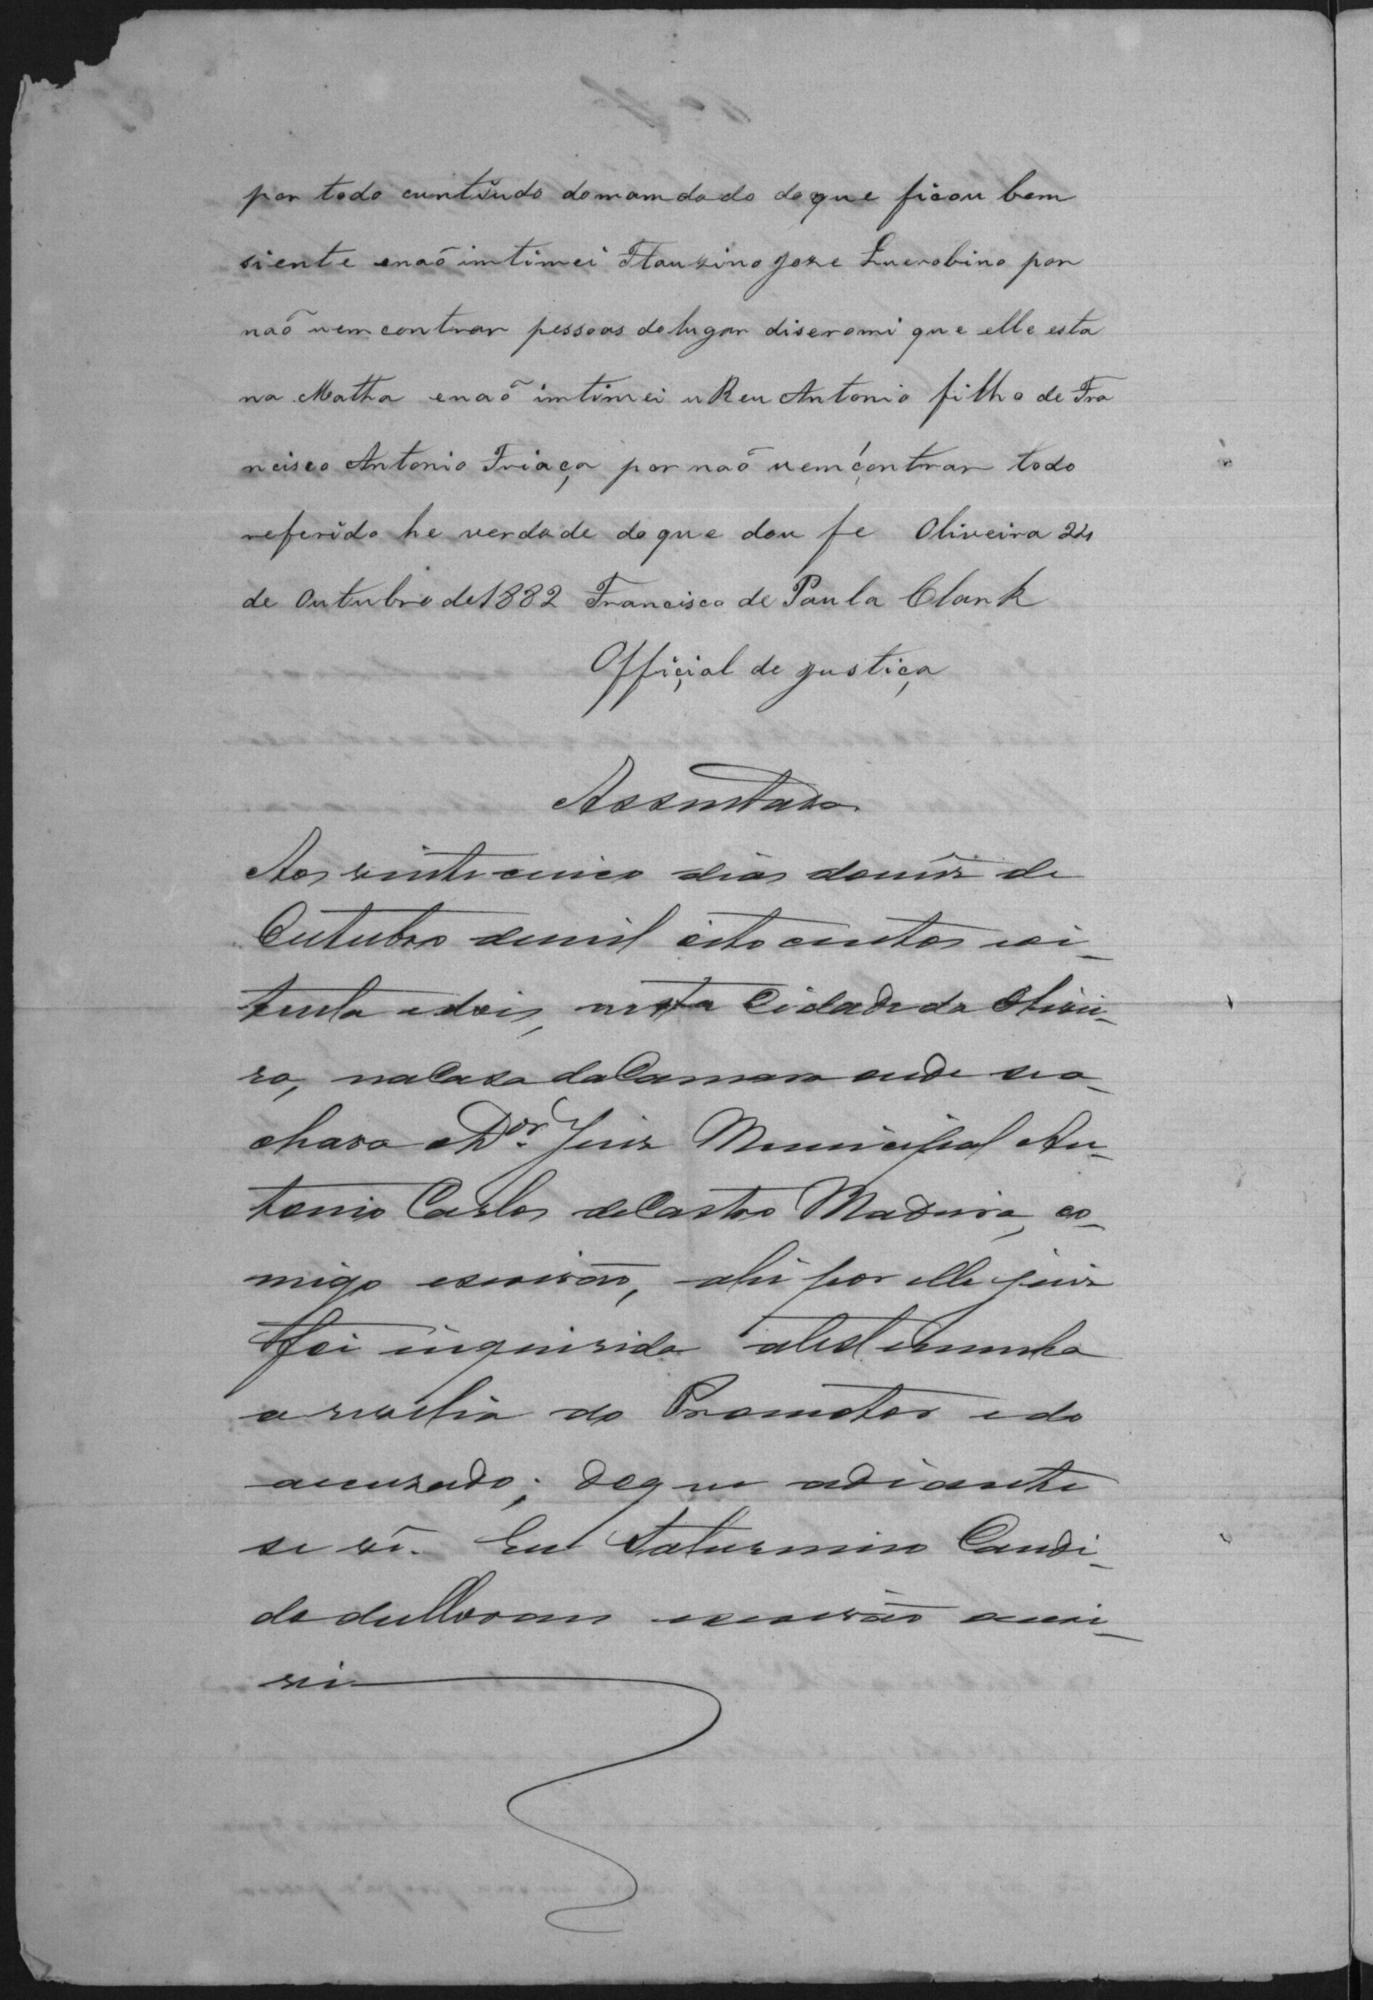 por todo cuntiudo domamdado doque ficou bem
siente enaõ imtimei Flauzino Joze Luerobino por
naõ uemcontrar pessoas dolugar diseromi que elle esta
na Matha enaõ imtimei u Reu Antonio filho de Fra
ncisco Antonio Friaça por naõ uemcontrar todo
referido he verdade doque dou fe Oliveira 24
de Outubro de 1882 Francisco de Paula Clark
Offiçial de justiça
Assentada
Aos vinte cinco dias domêz de
Outubro demil oito centos eoi-
tenta edois, nesta Cidade da Olivei-
ra, na Casa da Camara onde sea-
chava o Dor. Juiz Municipal An-
tonio Carlos de Castro Madeira, co-
migo escrivão, ahi por elle juiz
foi inquirida atestemunha
a revelia do Promotor e do
accusado; do que adiante
se vê. Eu Saturnino Candi-
do escrivão escre-
vi